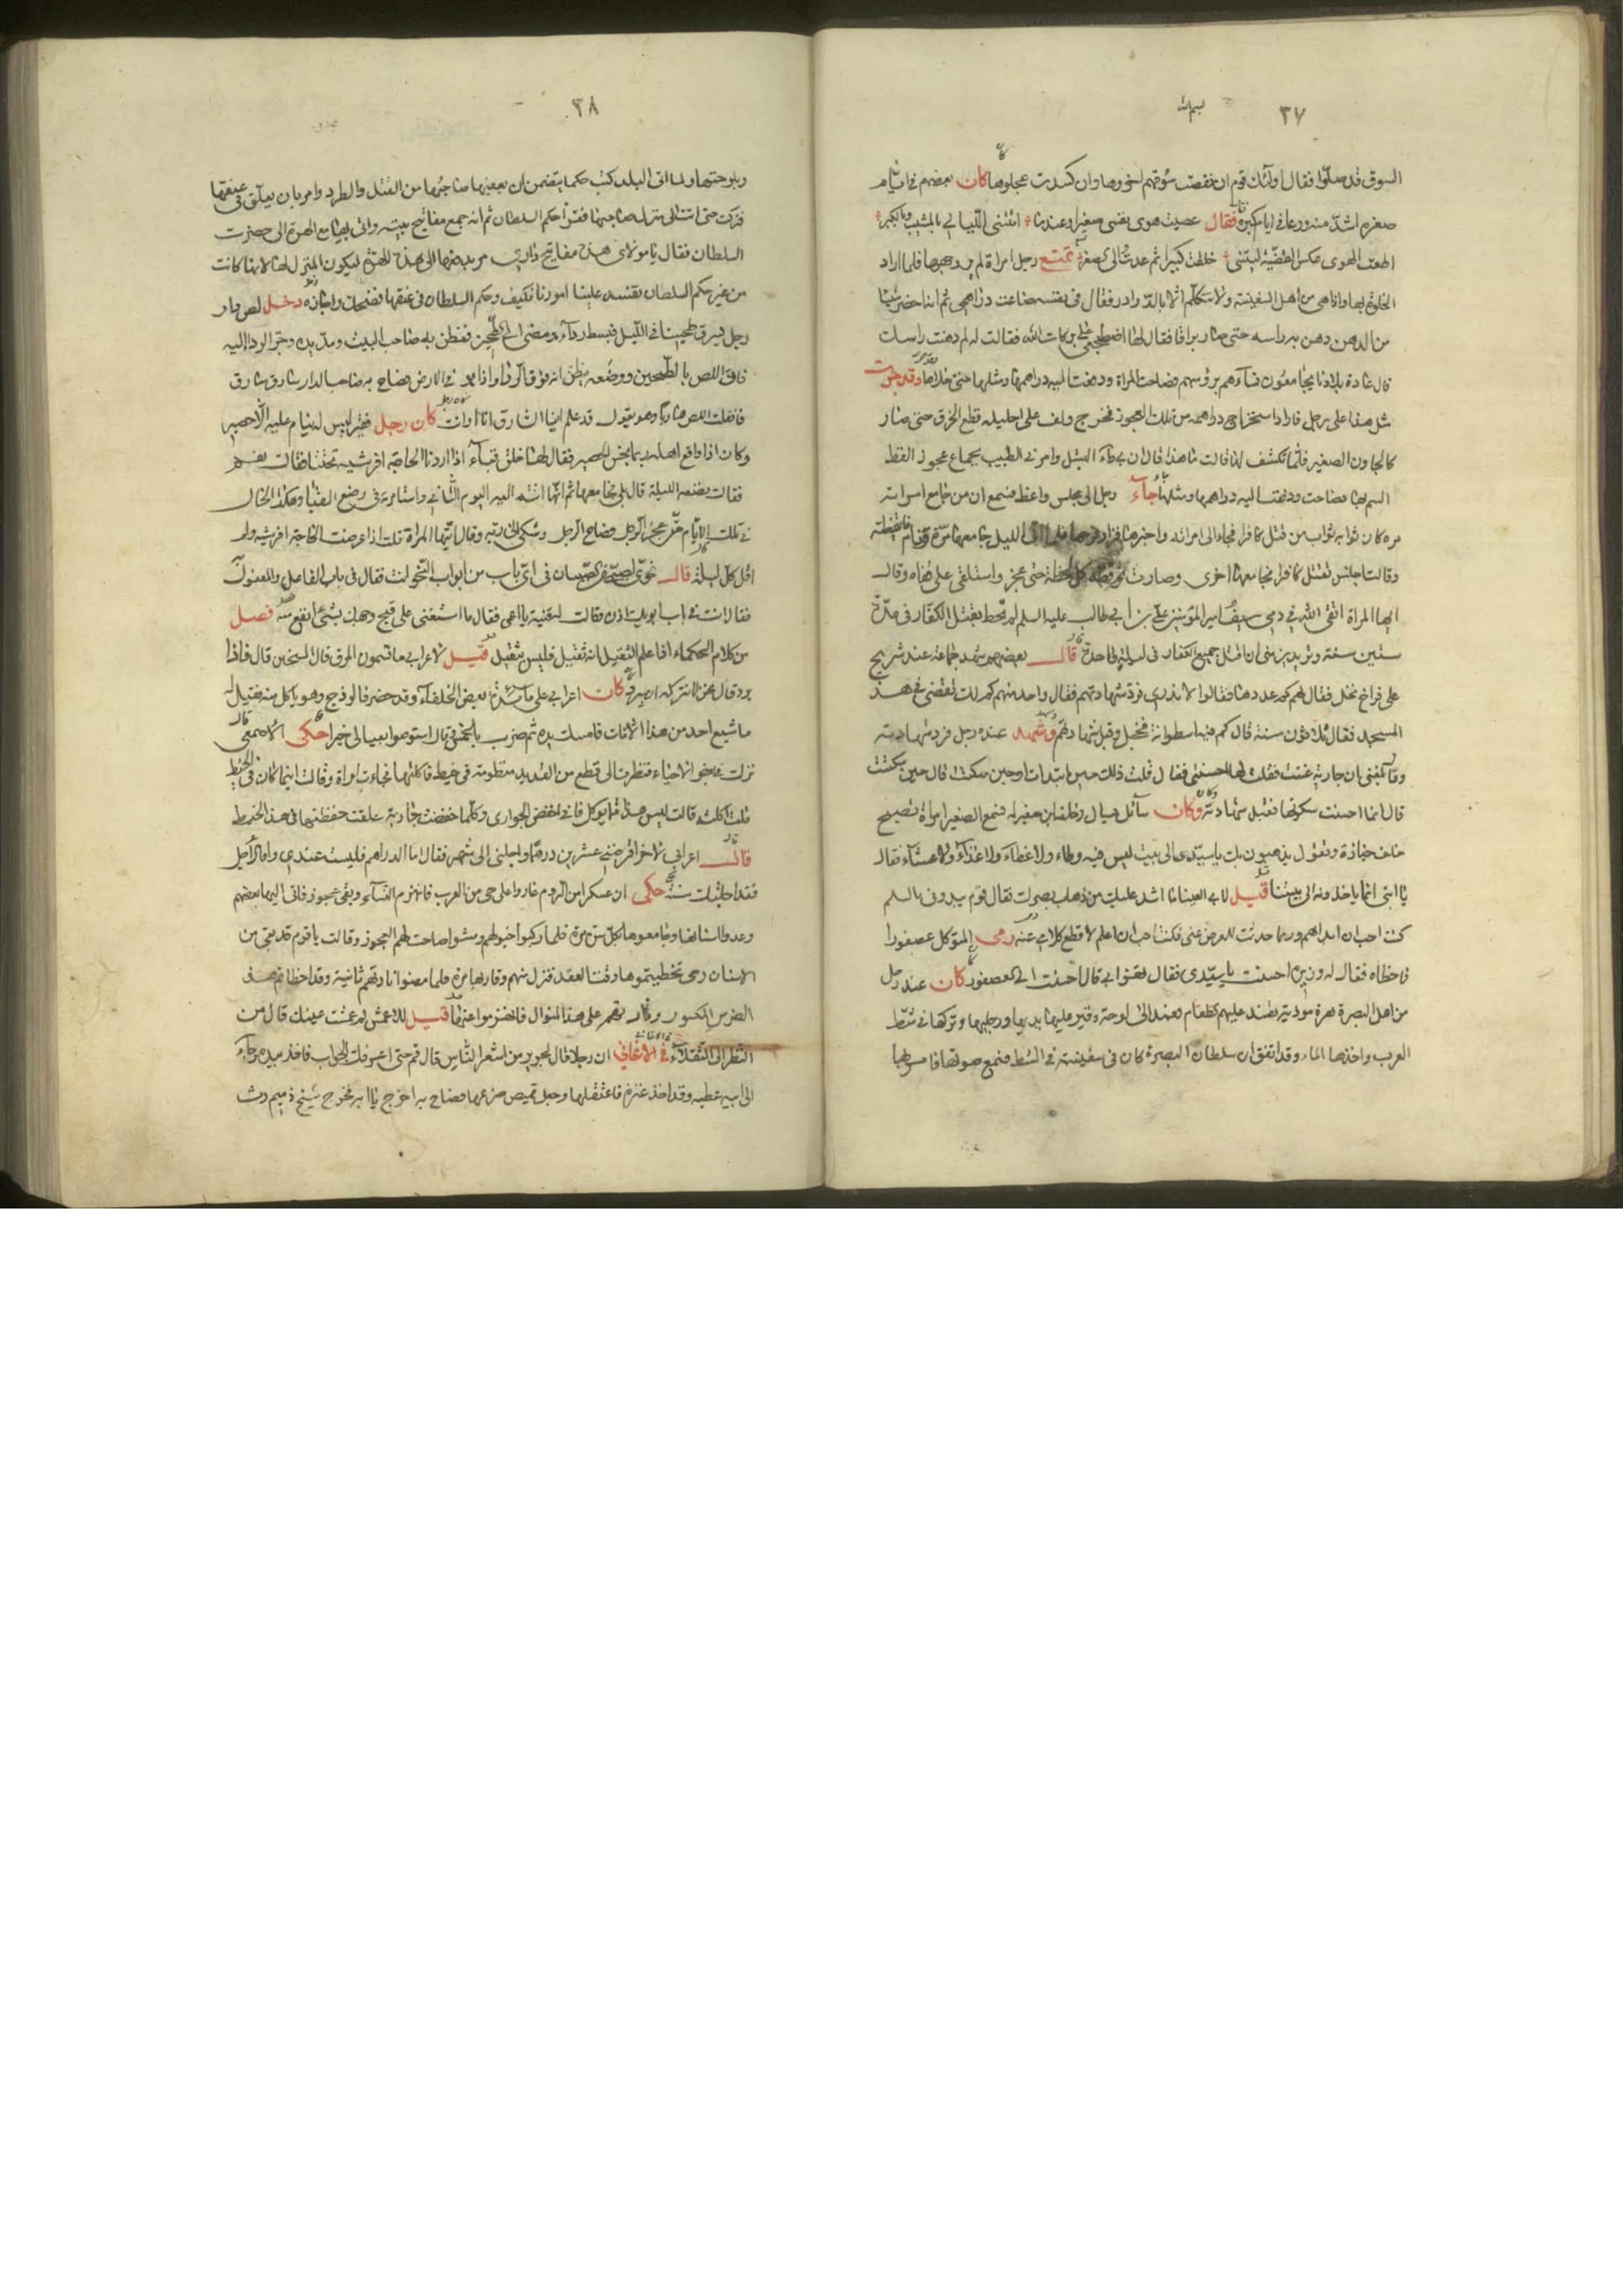 ٣٧
السوق قد صلّوا فقال اولئك قوم ان نفقت سوقهم اخروها وان كسدت عجلوها كان بعضهم في ايام
صغره اشدّ منه ورعا في ايام كبره فقال عصيت هوى نفسي صغيرا وعندما اتتني الليالي بالمشيب وبالكبر
اطعت الهوى عكس القضية ليتني خلقت كبيرا ثم عدت الى الصغر تمتع رجل امراة لم ير وجهها فلما اراد
الخلوة بها واذا هي من اهل السفينة ولا تتكلم الا بالدر ادر فقال في نفسه ضاعت دراهمي ثم انه احضر شيئا
من الدهن دهن به راسه حتى صار براقا فقال لها اضطجعي على بركات الله فقالت له لم دهنت راسك
قال عادة بلادنا يجامعون نساءهم برؤسهم فصاحت المراة ودفعت اليه دراهمها ومثلها حتى خلاها وقد جرت
مثل هذا على رجل فاراد استخراج دراهمه من تلك العجوز فخرج ولف على احليله قطع الخرق حتى صار
كالهاون الصغير فلما تكشف لها قالت ما هذا قال ان بي داء الفيل وامرني الطبيب بجماع عجوز القط
السم بها فصاحت ودفعت اليه دراهمها ومثلها جاء رجل الى مجلس واعظ فسمع ان من جامع امراته
مرة كان ثوابه ثواب من قتل كافرا فجاء الى امراته واخبرها فزاد فرحها فلما اتى الليل جامعها مرة ونام فايقظته
وقالت اجلس نقتل كافرا فجامعها اخرى وصارت توقظه كل لحظة حتى عجز واستلقى على قفاه وقال
ايها المراة اتقي الله في دمي سيف امير المؤمنين علي بن ابي طالب عليه السلم لم يحط بقتل الكفار في مدة
ستين سنة وتريدين مني ان اقتل جميع الكفار في ليلة واحدة قال بعضهم شهد جماعة عند شريح
على فراخ نخل فقال لهم كم عددها فقالوا لا ندري فردّ شهادتهم فقال واحد منهم كم لك تقضي في هذا
المسجد فقال ثلاثون سنة قال كم فيه اسطوانة فخجل وقبل شهادتهم وشهد عنده رجل فرد شهادته
وقال بلغني ان جارية غنت فقلت لها احسنتي فقال قلت ذلك حين ابتدات او حين سكتت قال حين سكتت
قال انما احسنت سكوتها فقبل شهادته وكان سائل يسال وخلفه ابن صغير له فسمع الصغير امراة تصيح
خلف جنازة وتقول يذهبون بك يا سيدي الى بيت ليس فيه وطاء ولا غطاء ولا غذاء ولا عشاء فقال
يا ابتي انما ياخذونه الى بيتنا قيل لابي العينا ما اشد عليك من ذهاب بصرك فقال قوم يبدوني بالسلم
كنت احب ان ابداهم وربما حدثت المعرض عني فكنت احب ان اعلم لاقطع كلامي عنه رمى المتوكل عصفورا
فاخطاه فقال له وزيره احسنت يا سيدي فقال تهزأ بي قال احسنت الى العصفور كان عند رجل
من اهل البصرة هرة موذية تفسد عليهم الطعام فعمد الى لوحة وقير عليها يديها ورجليها وتركها في شط
العرب واخذها الماء وقد اتفق ان سلطان البصرة كان في سفينة في الشط فسمع صوتها فامر بها
٣٨
ولما اتى البلد كتب حكما يتضمن ان يعفيها صاحبها من القتل والطرد وامر بان يعلق في عنقها
فتركت حتى اتت الى منزل صاحبها فقرأ حكم السلطان ثم انه جمع مفاتيح بيته واتى بها مع الهرة الى حضرت
السلطان فقال يا مولاي هذه مفاتيح داري مر بدفعها الى هذه الهرة ليكون المنزل لها لانها كانت
من غير حكم السلطان تفسد علينا امورنا فكيف وحكم السلطان في عنقها فضحك واجازه دخل لص دار
رجل ليسرق طحينا في الليل فبسط رداءه ومضى الى الطحين ففطن به صاحب البيت ومدّ يده وجرّ الردا اليه
فاتى اللص بالطحين ووضعه يظن انه فوق الردا واذا هو في الارض فصاح به صاحب الدار سارق سارق
فافلت اللص هاربا وهو يقول قد علم اينا السارق انا او انت كان رجل فقير ليس له ينام عليه الا حصير
وكان اذا واقع اهله ربما نجس الحصير فقال لها خلق قباء اذا اردنا الحاجة افرشيه تحتنا قالت نعم
فقالت بعضه الليلة قال بلى فجامعها ثم انها اتت اليه اليوم الثاني واستامرته في وضع القبا وهكذا الحال
في تلك الايام حتى عجز الرجل فصاح الرجل وشكى الى ربه وقال ايتها المراة قلت اذا عرضت الحاجة افرشيه ولم
اقل كل ليلة قال نحوي لصبي في اي باب من ابواب النحو انت فقال في باب الفاعل والمفعول
فقال انت في باب ابويك اذن وقالت لقينة يا اعمى فقال ما استغنى على قبح وجهك بشئ انفع منه فصل
من كلام الحكماء اذا علم الثقيل انه ثقيل فليس بثقيل قيل لاعرابي ما تسمون المرق قال السخين قال فاذا
برد قال نحن لا نتركه ان يبرد كان اعرابي على مائدة بعض الخلفاء وقد حضر فالوذج وهو ياكل منه فقيل له
ما شبع احد من هذا الا مات فامسك يده ثم ضرب بالخمس وقال استوصوا بعيالي خيرا حكى الاصمعي قال
نزلت في بعض الاحياء فنظرت الى قطع من القديد منظومة في خيط فاكلتها فجاءت امراة وقالت اين ما كان في الخيط
قلت اكلته قالت ليس هذا مما يوكل فاني اخفض الجواري وكلما خفضت جارية علقت خفظتها في هذا الخيط
قال اعرابي لاخر اقرضني عشرين درهما واجلني الى شهر فقال اما الدراهم فليست عندي واما الاجل
فقد اجلتك سنة حكى ان عسكرا من الروم غاروا على حي من العرب فانهزم النساء وبقي عجوز فاتى اليها بعضهم
وعدوا الشايفا وجامعوها كل ستن مرة فلما ركبوا خيولهم ومشوا صاحت لهم العجوز وقالت يا قوم قد بقي من
الاسنان رحى تخطيتموها وقت العقد فنزل منهم وقاربها مرة فلما مضوا نادتهم ثانية وقد اخطاتم هذا
الضرس المكسور على هذا المنوال فانهزموا عنها قيل للاعمش لم عمشت عينك قال من
النظر الى الثقلاء في الاغاني ان رجلا قال لجرير من اشعر الناس قال قم حتى اعرفك الجواب فاخذ بيده وجاء
الى ابيه عطيه وقد اخذ عنزه فاعتقلها وجعل يمص ضرعها فصاح به اخرج يا ابه فخرج شيخ ذميم رث